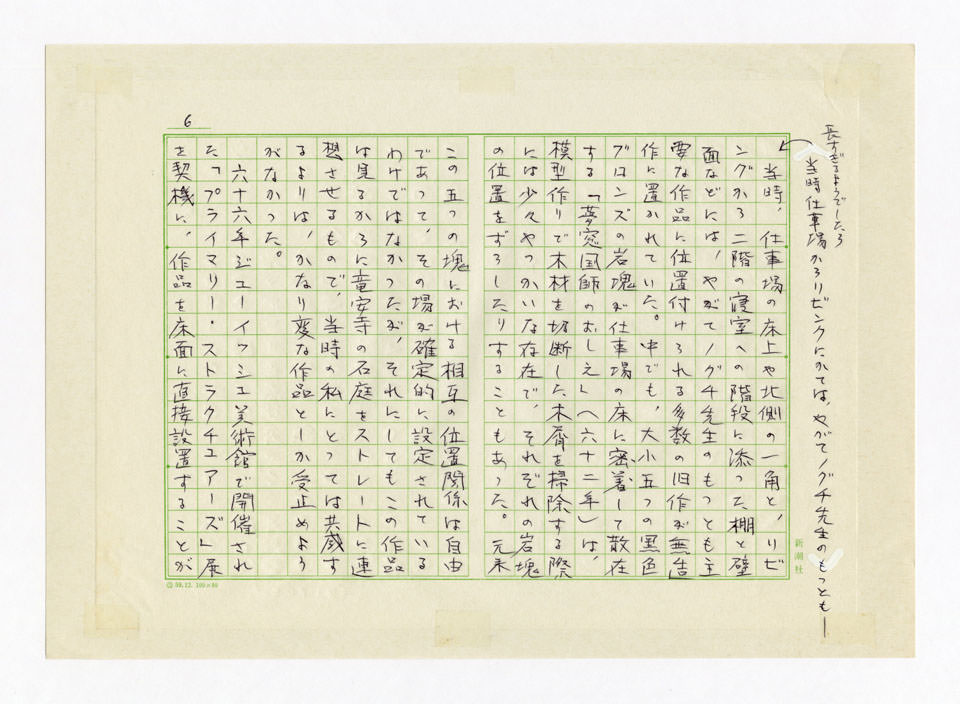 長すぎるようでしたら
当時仕事場からリビングにかけては、やがてノグチ先生のもっとも―
当時、仕事場の床上や北側の一角と、リビ
ングから二階の寝室への階段に添った棚と壁
面などには、やがてノグチ先生のもっとも主
要な作品に位置付けられる多数の旧作が無造
作に置かれていた。中でも、大小五つの黒色
ブロンズの岩塊が仕事場の床に密着して散在
する「夢窓国師のおしえ」(六十二年)は、
模型作りで木材を切断した木屑を掃除する際
には少々やっかいな存在で、それぞれの岩塊
の位置をずらしたりすることもあった。元来
この五つの塊における相互の位置関係は自由
であって、その場が確定的に設定されている
わけではなかったが、それにしてもこの作品
は見るからに竜安寺の石庭をストレートに連
想させるもので、当時の私にとっては共感す
るよりは、かなり変な作品としか受止めよう
がなかった。
六十六年ジューイッシュ美術館で開催され
た「プライマリー・ストラクチュアーズ」展
を契機に、作品を床面に直接設置することが
6
新潮社